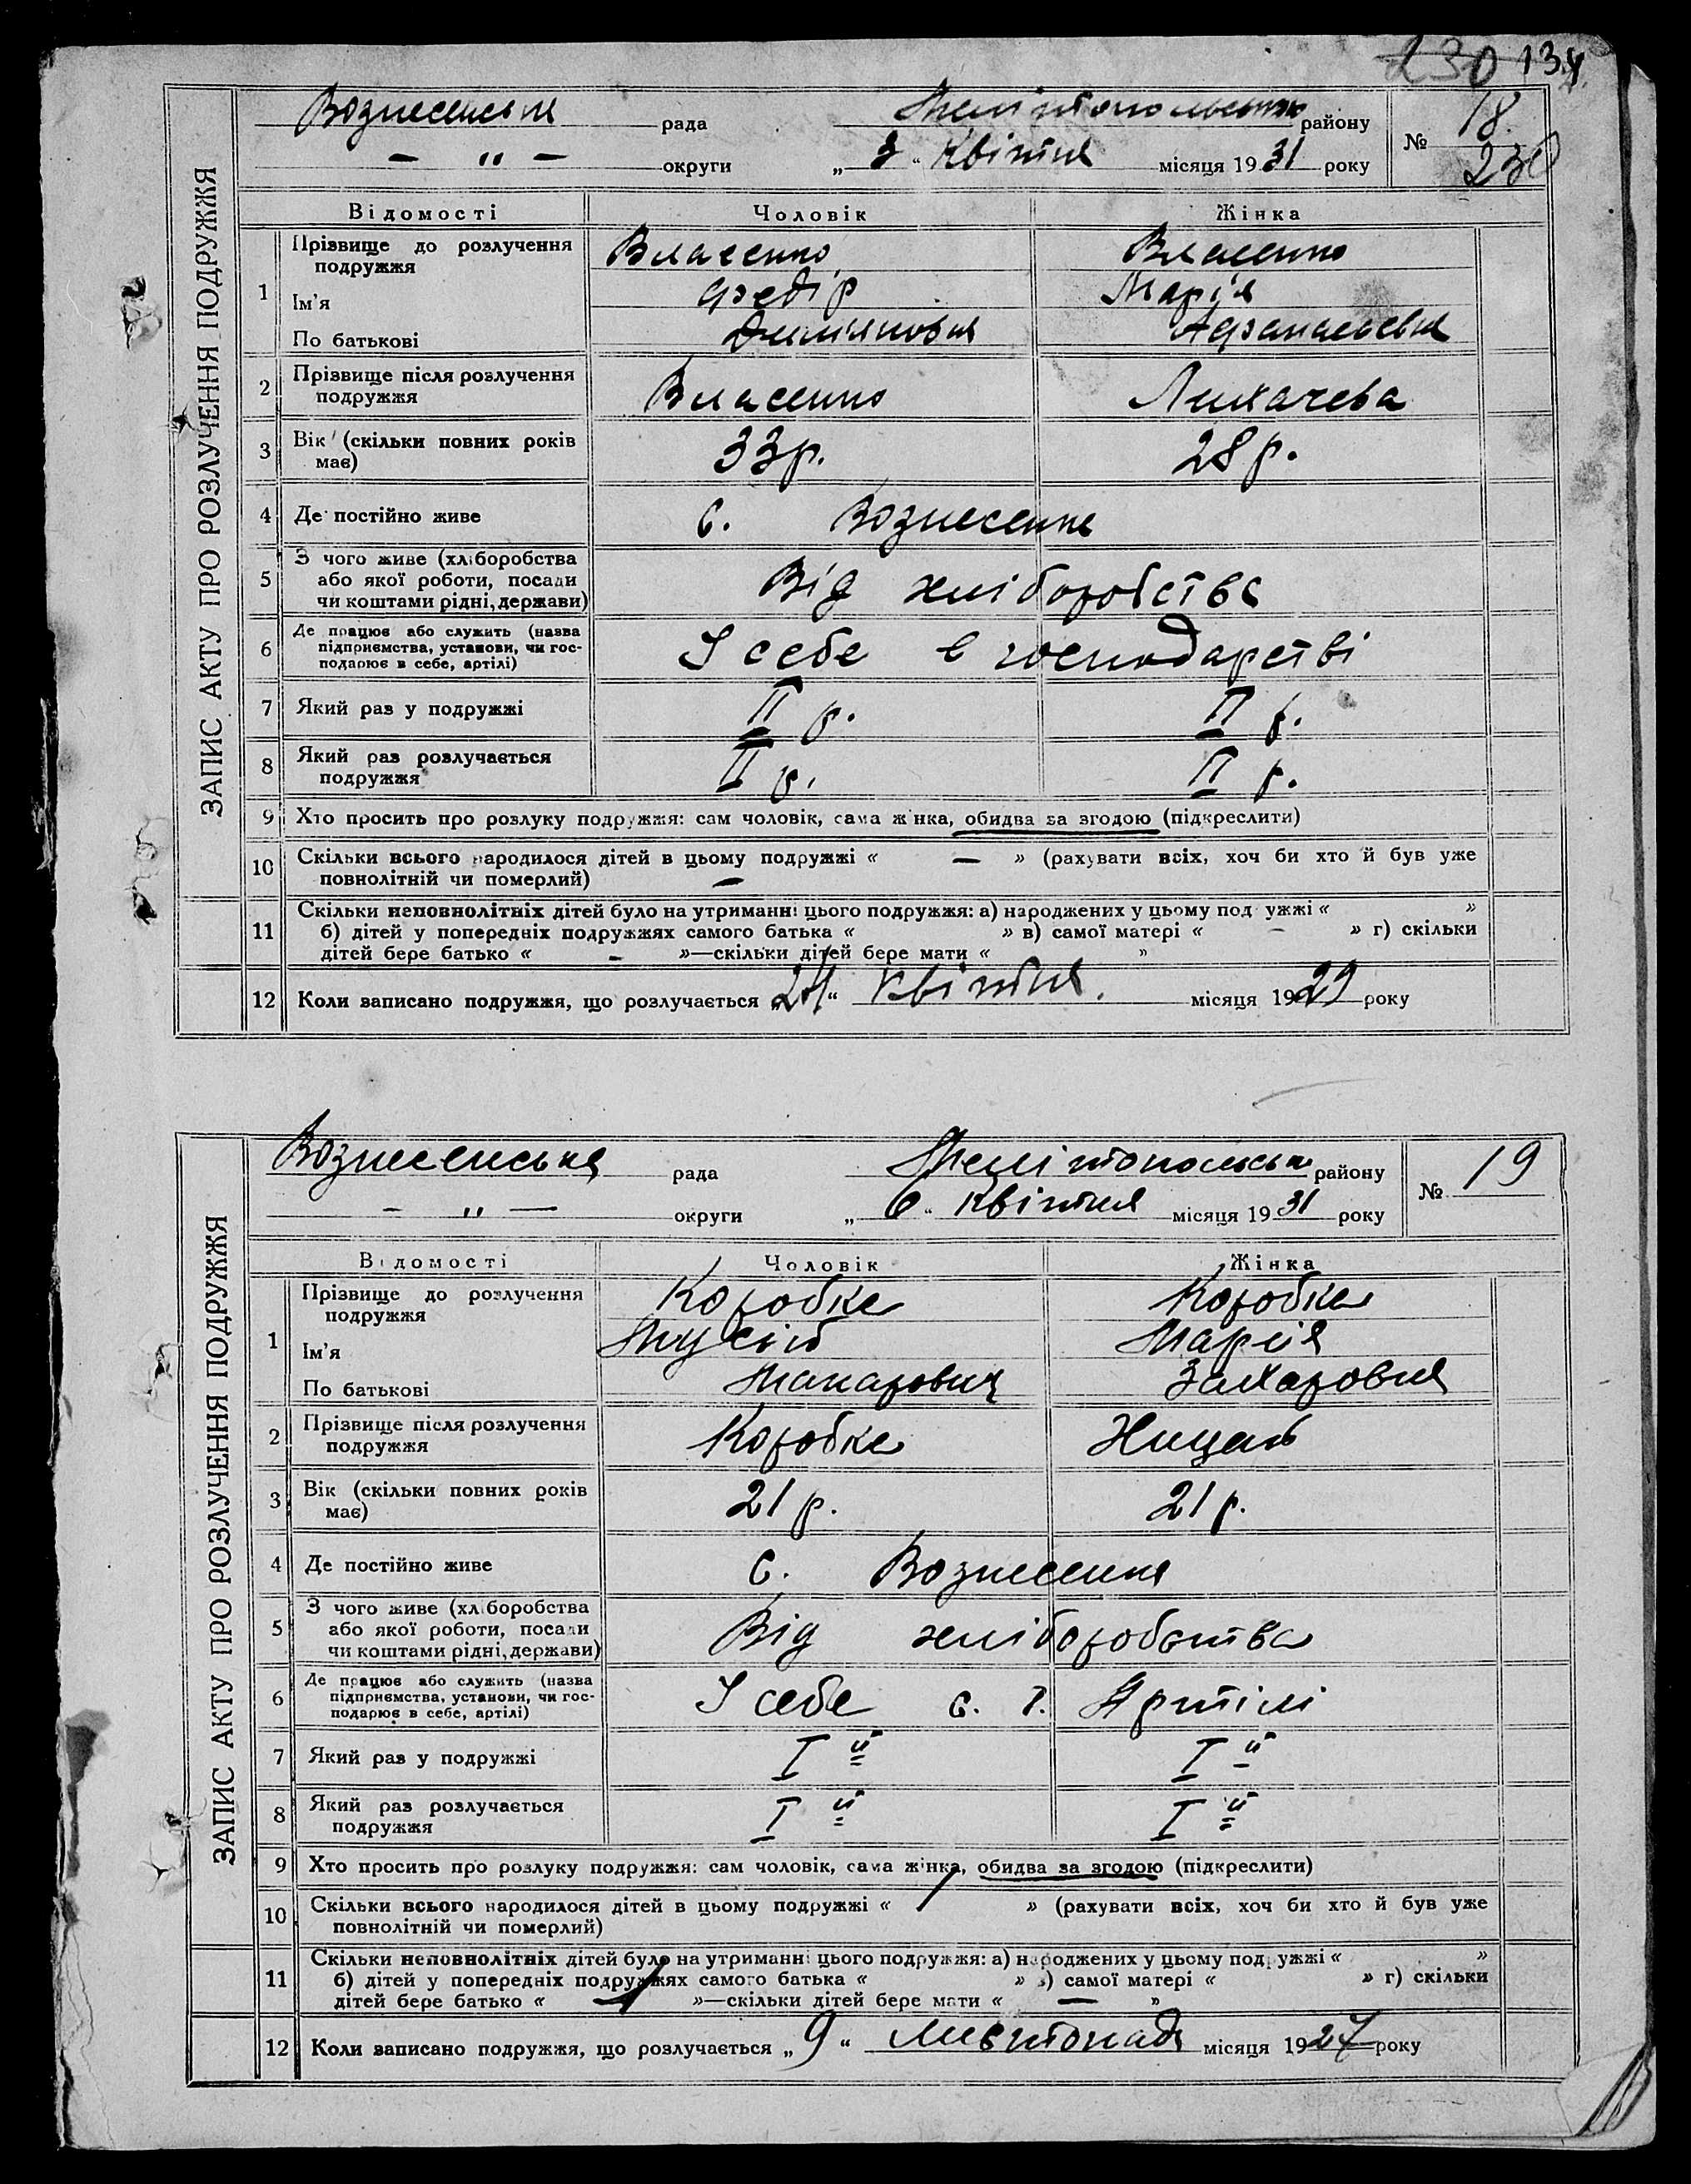 230 134
ЗАПИС АКТУ ПРО РОЗЛУЧЕННЯ ПОДРУЖЖЯ
Вознесенська рада Мелітопольського району № 18
— " — округи „ 3 “ квітня місяця 19 31 року 230
Відомості Чоловік Жінка
1 Прізвище до розлучення подружжя Власенко Власенко
Ім’я Федір Марія
По батькові Афанасьевна
2 Прізвище після розлучення подружжя Власенко Лихачева
3 Вік (скільки повних років має) 33 р. 28 р.
4 Де постійно живе с. Вознесенка
5 З чого живе (хліборобства або якої роботи, посади чи коштами рідні, держави) Від хліборобства
6 Де працює або служить (назва підприємства, установи, чи господарює в себе, артілі) У себе в господарстві
7 Який раз у подружжі II р. II р.
8 Який раз розлучається подружжя II р. II р.
9 Хто просить про розлуку подружжя: сам чоловік, сама жінка, обидва за згодою (підкреслити)
10 Скільки всього народилося дітей в цьому подружжі « — » (рахувати всіх, хоч би хто й був уже
повнолітній чи померлий) —
11 Скільки неповнолітніх дітей було на утриманні цього подружжя: а) народжених у цьому подружжі « »
б) дітей у попередніх подружжях самого батька « » в) самої матері « – » г) скільки
дітей бере батько « – »—скільки дітей бере мати « »
12 Коли записано подружжя, що розлучається „ 24 “ квітня. місяця 19 29 року
ЗАПИС АКТУ ПРО РОЗЛУЧЕННЯ ПОДРУЖЖЯ
Вознесенська рада Мелітопольськ району № 19
— " — округи „ 6 “ квітня місяця 19 31 року
Відомості Чоловік Жінка
1 Прізвище до розлучення подружжя Коробка Коробка
Ім’я Мусій Марія
По батькові Макарович Захаровна
2 Прізвище після розлучення подружжя Коробка
3 Вік (скільки повних років має) 21 р. 21 р.
4 Де постійно живе с. Вознесенка
5 З чого живе (хліборобства або якої роботи, посади чи коштами рідні, держави) Від хліборобства
6 Де працює або служить (назва підприємства, установи, чи господарює в себе, артілі) У себе с. г. Артілі
7 Який раз у подружжі I й I й
8 Який раз розлучається подружжя I й I й
9 Хто просить про розлуку подружжя: сам чоловік, сама жінка, обидва за згодою (підкреслити)
10 Скільки всього народилося дітей в цьому подружжі « / » (рахувати всіх, хоч би хто й був уже
повнолітній чи померлий)
11 Скільки неповнолітніх дітей було на утриманні цього подружжя: а) народжених у цьому подружжі « »
б) дітей у попередніх подружжях самого батька « » в) самої матері « » г) скільки
дітей бере батько « — »—скільки дітей бере мати « — »
12 Коли записано подружжя, що розлучається „ 9 “ листопада місяця 19 27 року